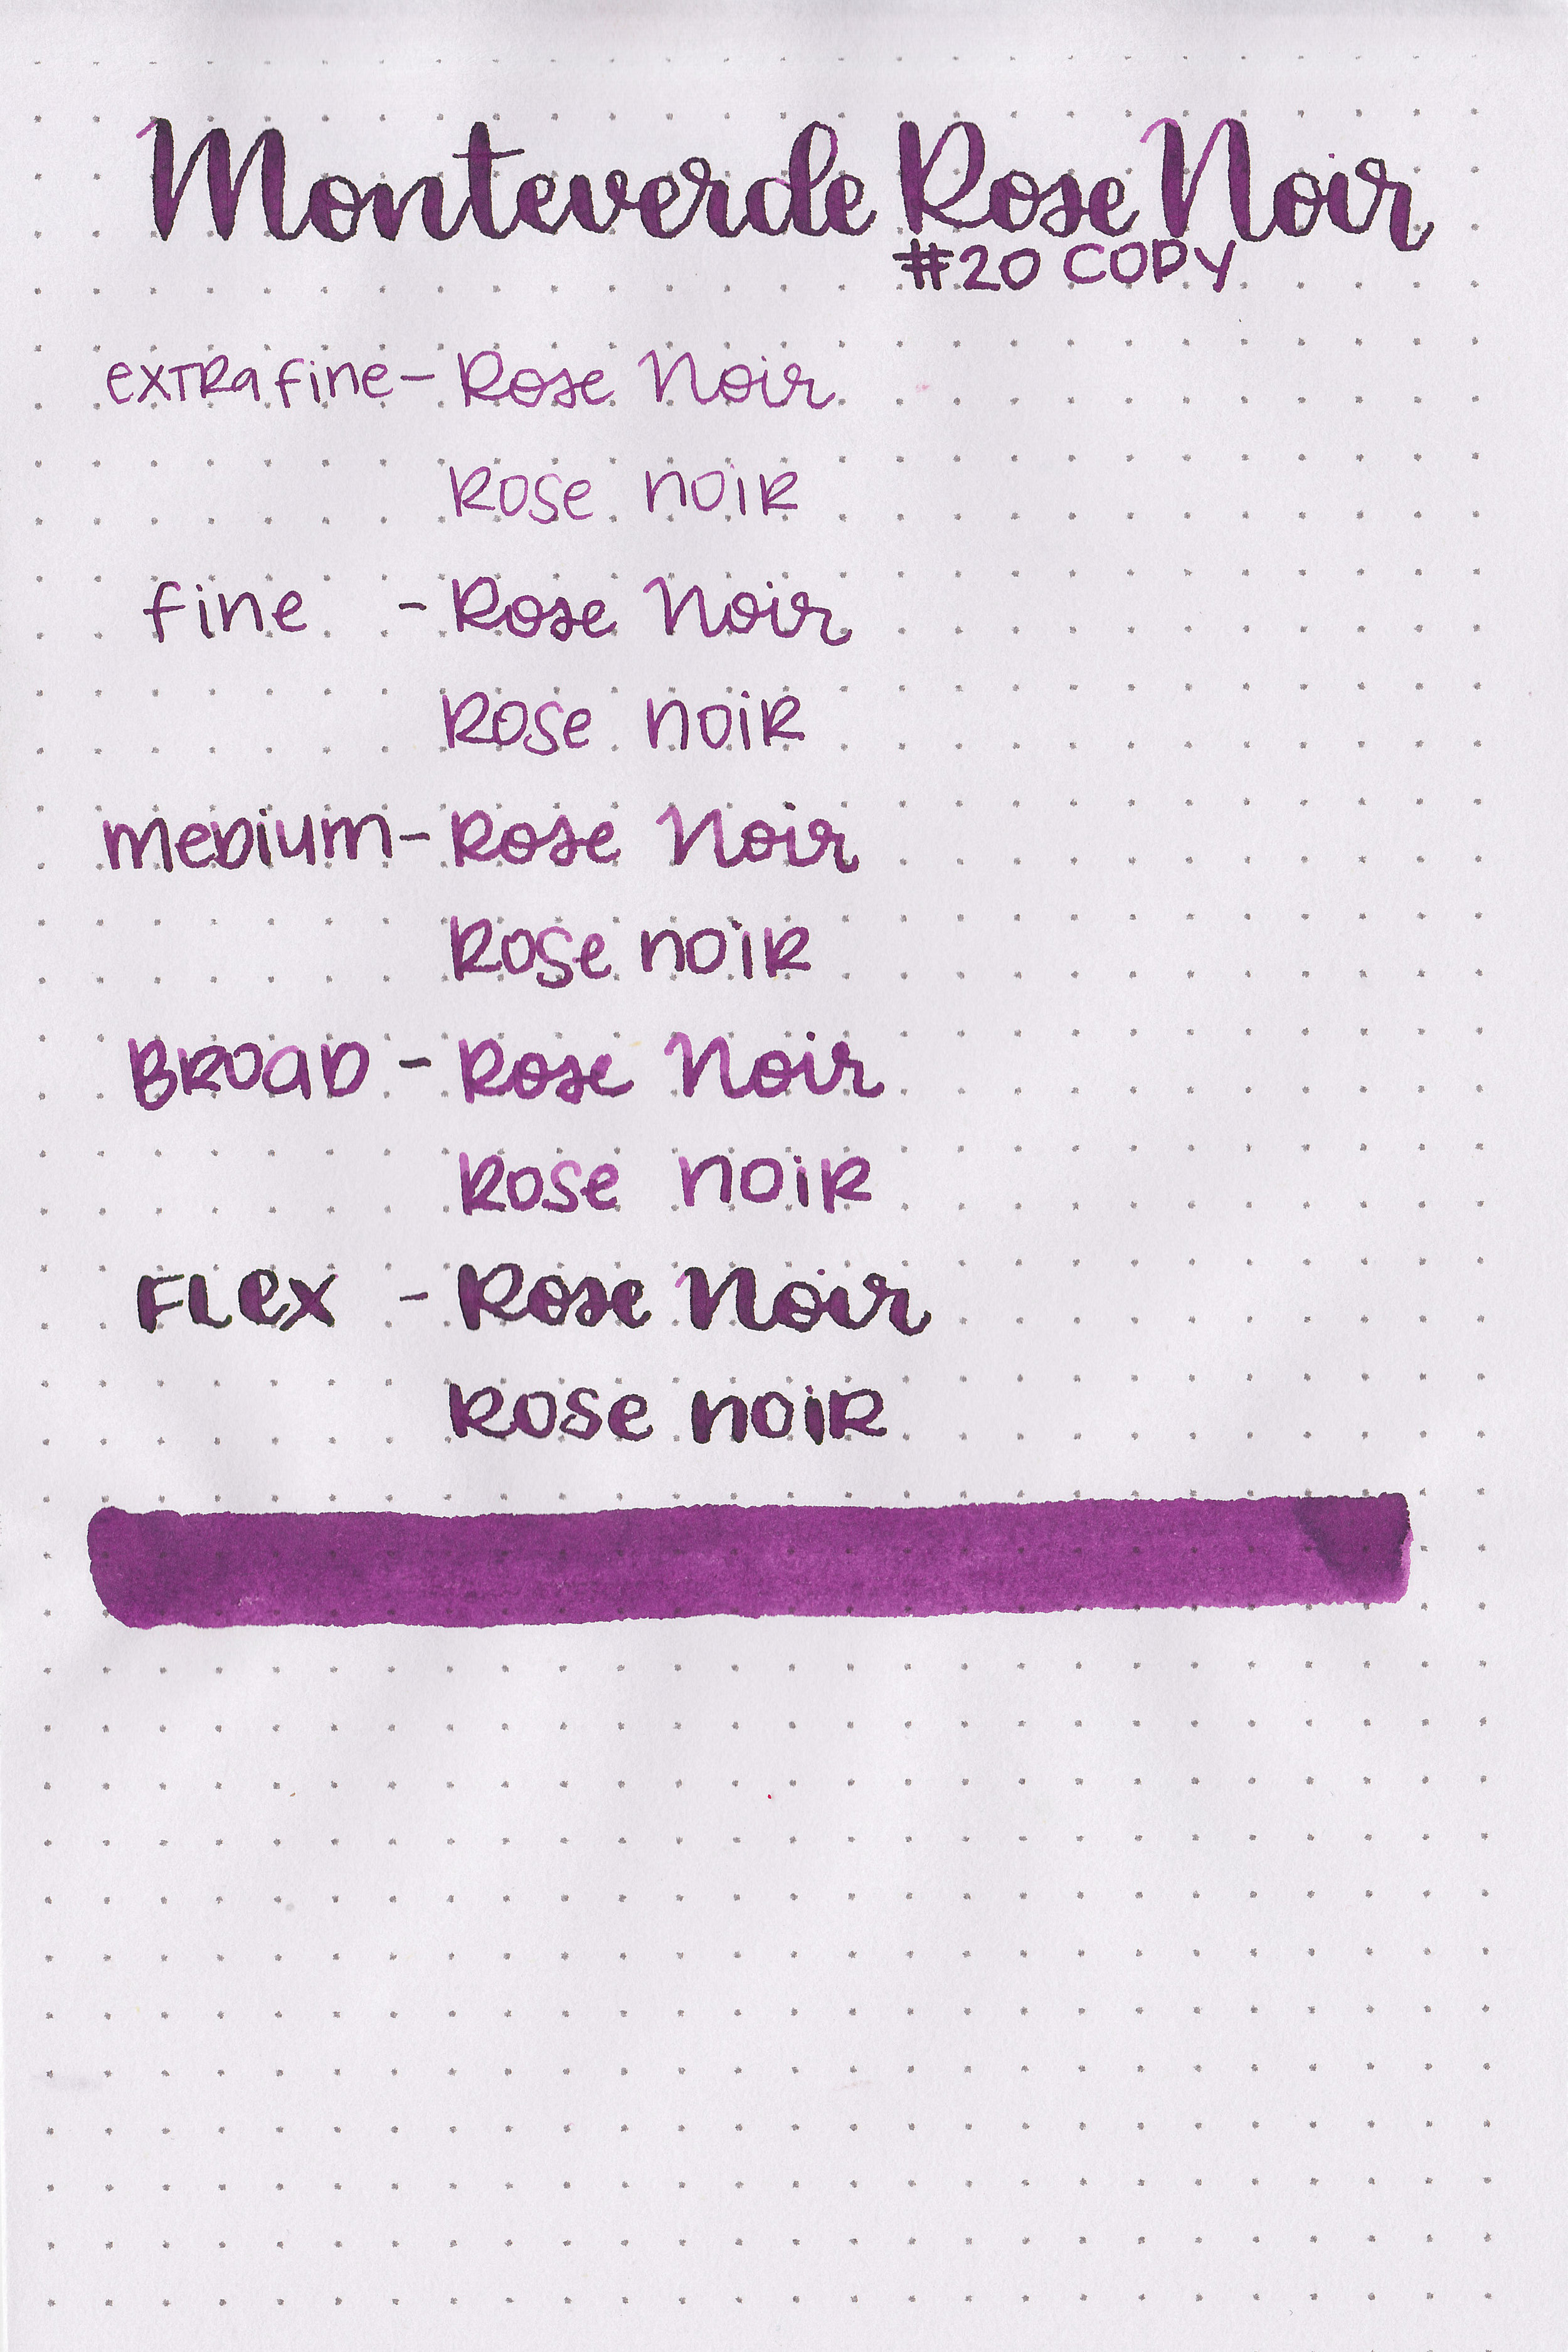 Monteverde Rose Noir
#20 COPY
extra fine - Rose Noir
Rose noir
fine - Rose Noir
Rose noir
medium - Rose Noir
Rose noir
Broad - Rose Noir
Rose noir
Flex - Rose Noir
Rose noir